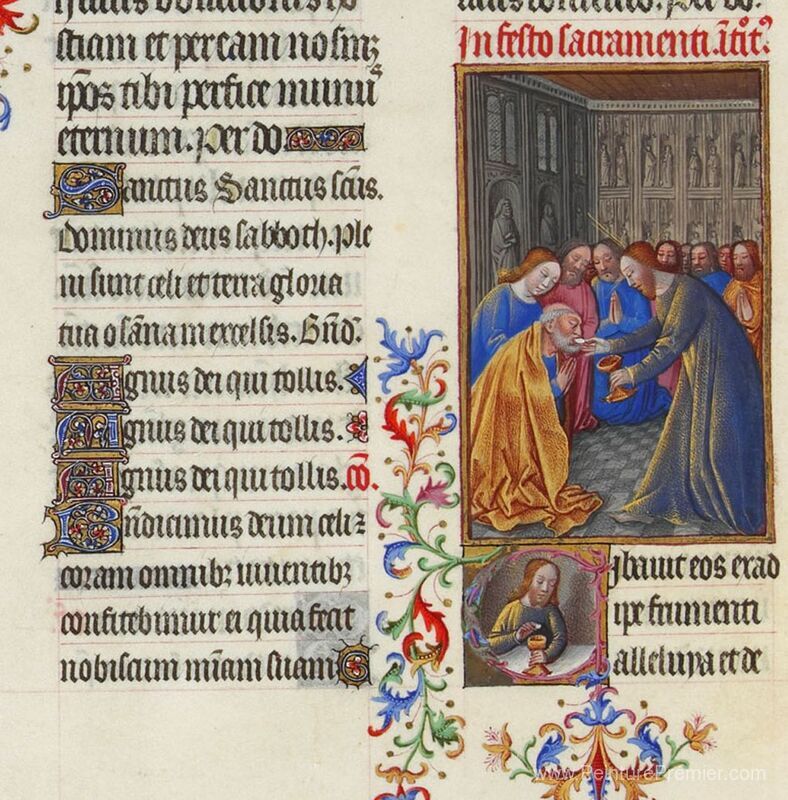 sticiam et per eam nos im
ipos tibi perfice munu
eternum. Per do
Sanctus Sanctus scūs.
dominus deus sabboth. ple
ni sunt celi et terra gloria
tua osāna in excelsis. Bn̄d̄.
Agnus dei qui tollis.
Agnus dei qui tollis.
Agnus dei qui tollis. cō.
Bn̄dicimus deum celi ⁊
coram omnibꝫ uiuentibꝫ
confitebimur ei quia fecit
nobiscum mīam suam
In festo sacramenti. ītr̄oit̄?
Cibauit eos ex ad
ipe frumenti
alleluya et de
www.PeinturePremier.com